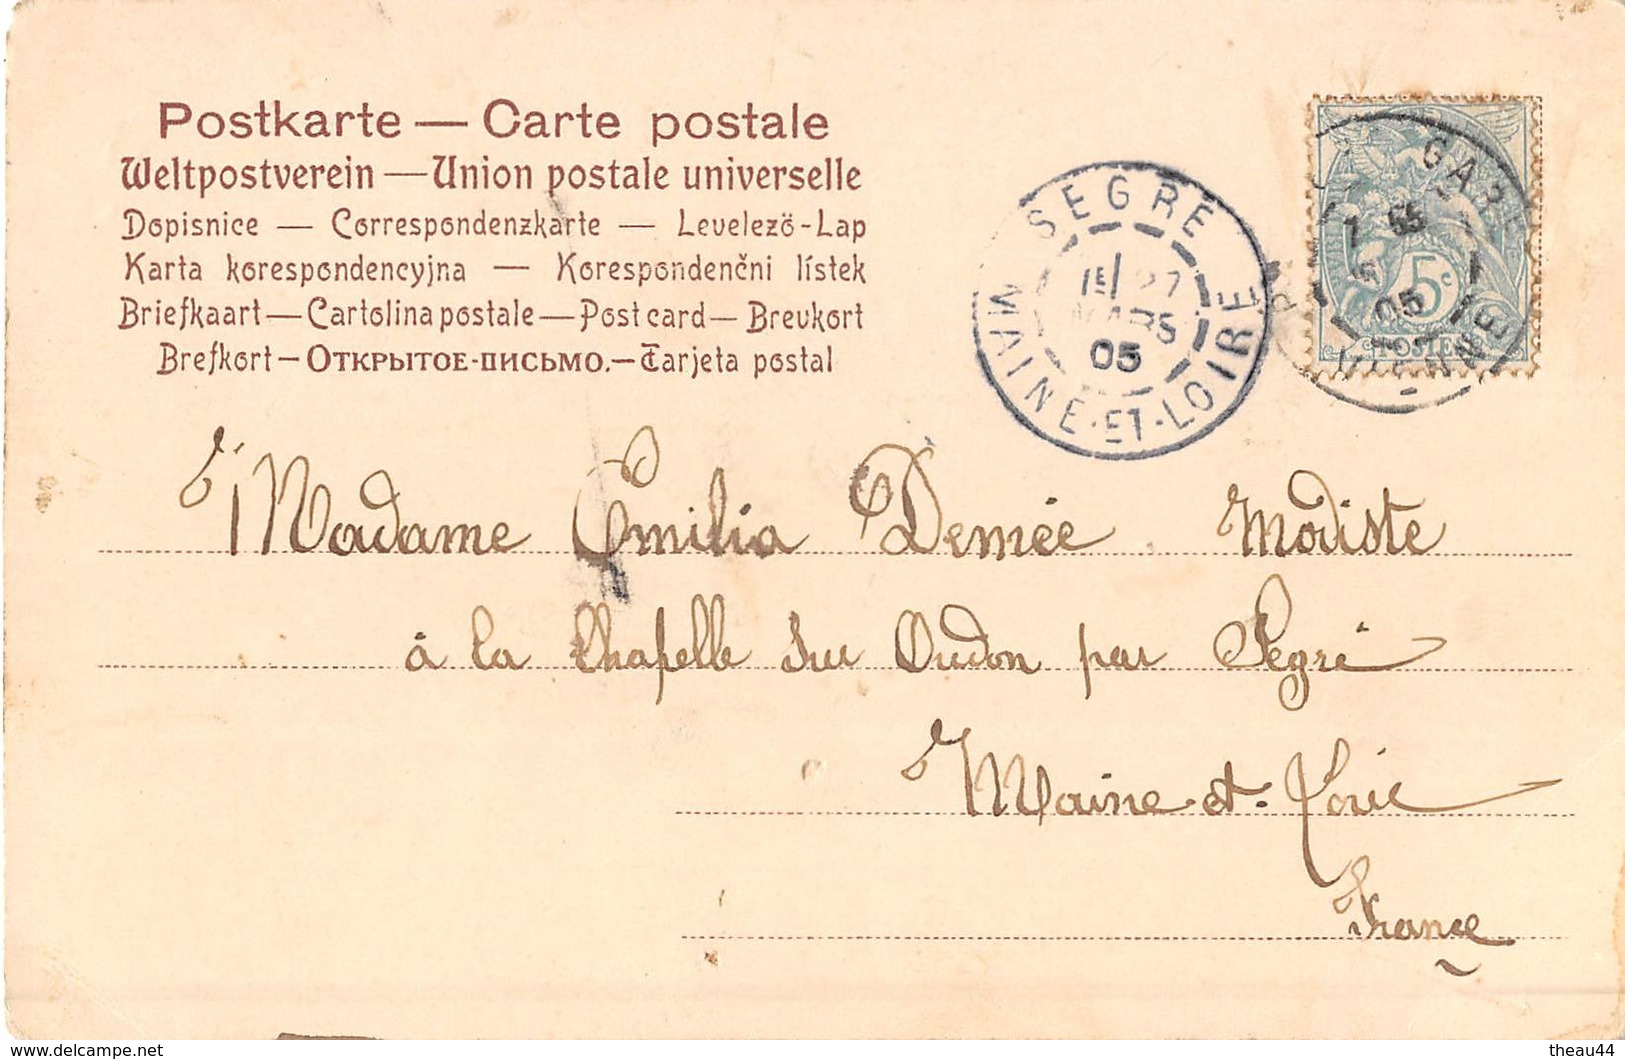 Postkarte — Carte postale
Weltpostverein — Union postale universelle
Dopisnice — Correspondenzkarte — Levelező-Lap
Karta korespondencyjna — Korespondenčni lístek
Briefkaart — Cartolina postale — Post card — Brevkort
Brefkort — Открытое-письмо. — Tarjeta postal
SEGRÉ
1E/ 27
MARS
05
MAINE-ET-LOIRE
GARE
7 55
05
VIENNE
5c
POSTES
Madame Emilia Demée Modiste
à la Chapelle sur Oudon par Segré
Maine-et-Loire
France
www.delcampe.net
theau44